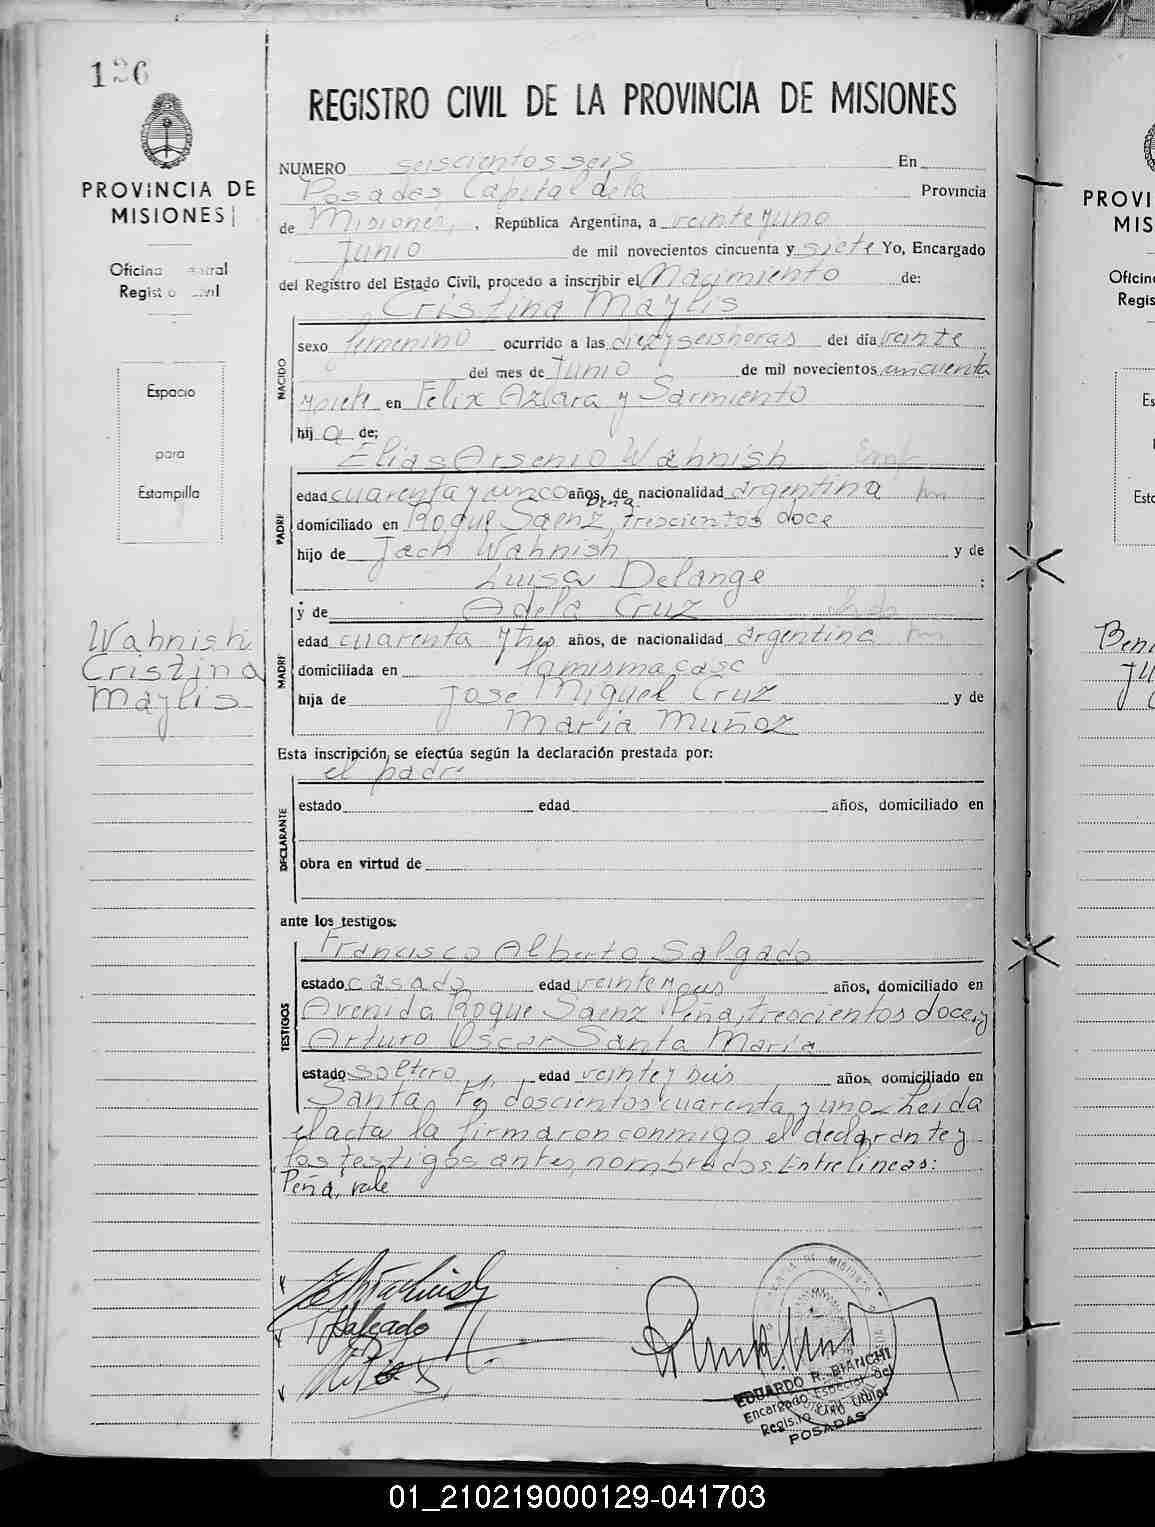 126
PROVINCIA DE
MISIONES
Oficina
Registro
Espacio
para
Estampilla
Wahnish
Cristina
Maylis
REGISTRO CIVIL DE LA PROVINCIA DE MISIONES
NUMERO seiscientos seis En
Posadas, Capital de la Provincia
de Misiones, , República Argentina, a veinte y uno
Junio de mil novecientos cincuenta y siete Yo, Encargado
del Registro del Estado Civil, procedo a inscribir el Nacimiento de:
Cristina Maylis
NACIDO
sexo femenino ocurrido a las diez y seis horas del día veinte
del mes de Junio de mil novecientos cincuenta
y siete en Felix Azara y Sarmiento
hij a de:
Elias Arsenio Wahnish
PADRE
edad cuarenta y cinco años, de nacionalidad argentina
Peña
domiciliado en Roque Saenz, trescientos doce
hijo de Jack Wahnish y de
Luisa Delange ;
y de Adela Cruz
MADRE
edad cuarenta y tres años, de nacionalidad argentina
domiciliada en la misma casa
hija de Jose Miguel Cruz y de
Maria Muñoz
Esta inscripción, se efectúa según la declaración prestada por:
el padre
DECLARANTE
estado edad años, domiciliado en
obra en virtud de
ante los testigos:
Francisco Alberto Salgado
TESTIGOS
estado casado edad veinte y años, domiciliado en
Avenida Roque Saenz Peña, trescientos doce, y
Arturo Oscar Santa Maria
estado soltero edad veinte y seis años, domiciliado en
Santa Fe, doscientos cuarenta y uno. Leida
el acta la firmaron conmigo el declarante y
los testigos antes nombrados. Entrelineas:
Peña, vale
Salgado
EDUARDO R. BIANCHI
Encargado Especial del
Registro Civil Titular
POSADAS
PROVI
MIS
Oficin
Regis
Es
Esto
Beni
Ju
01_210219000129-041703